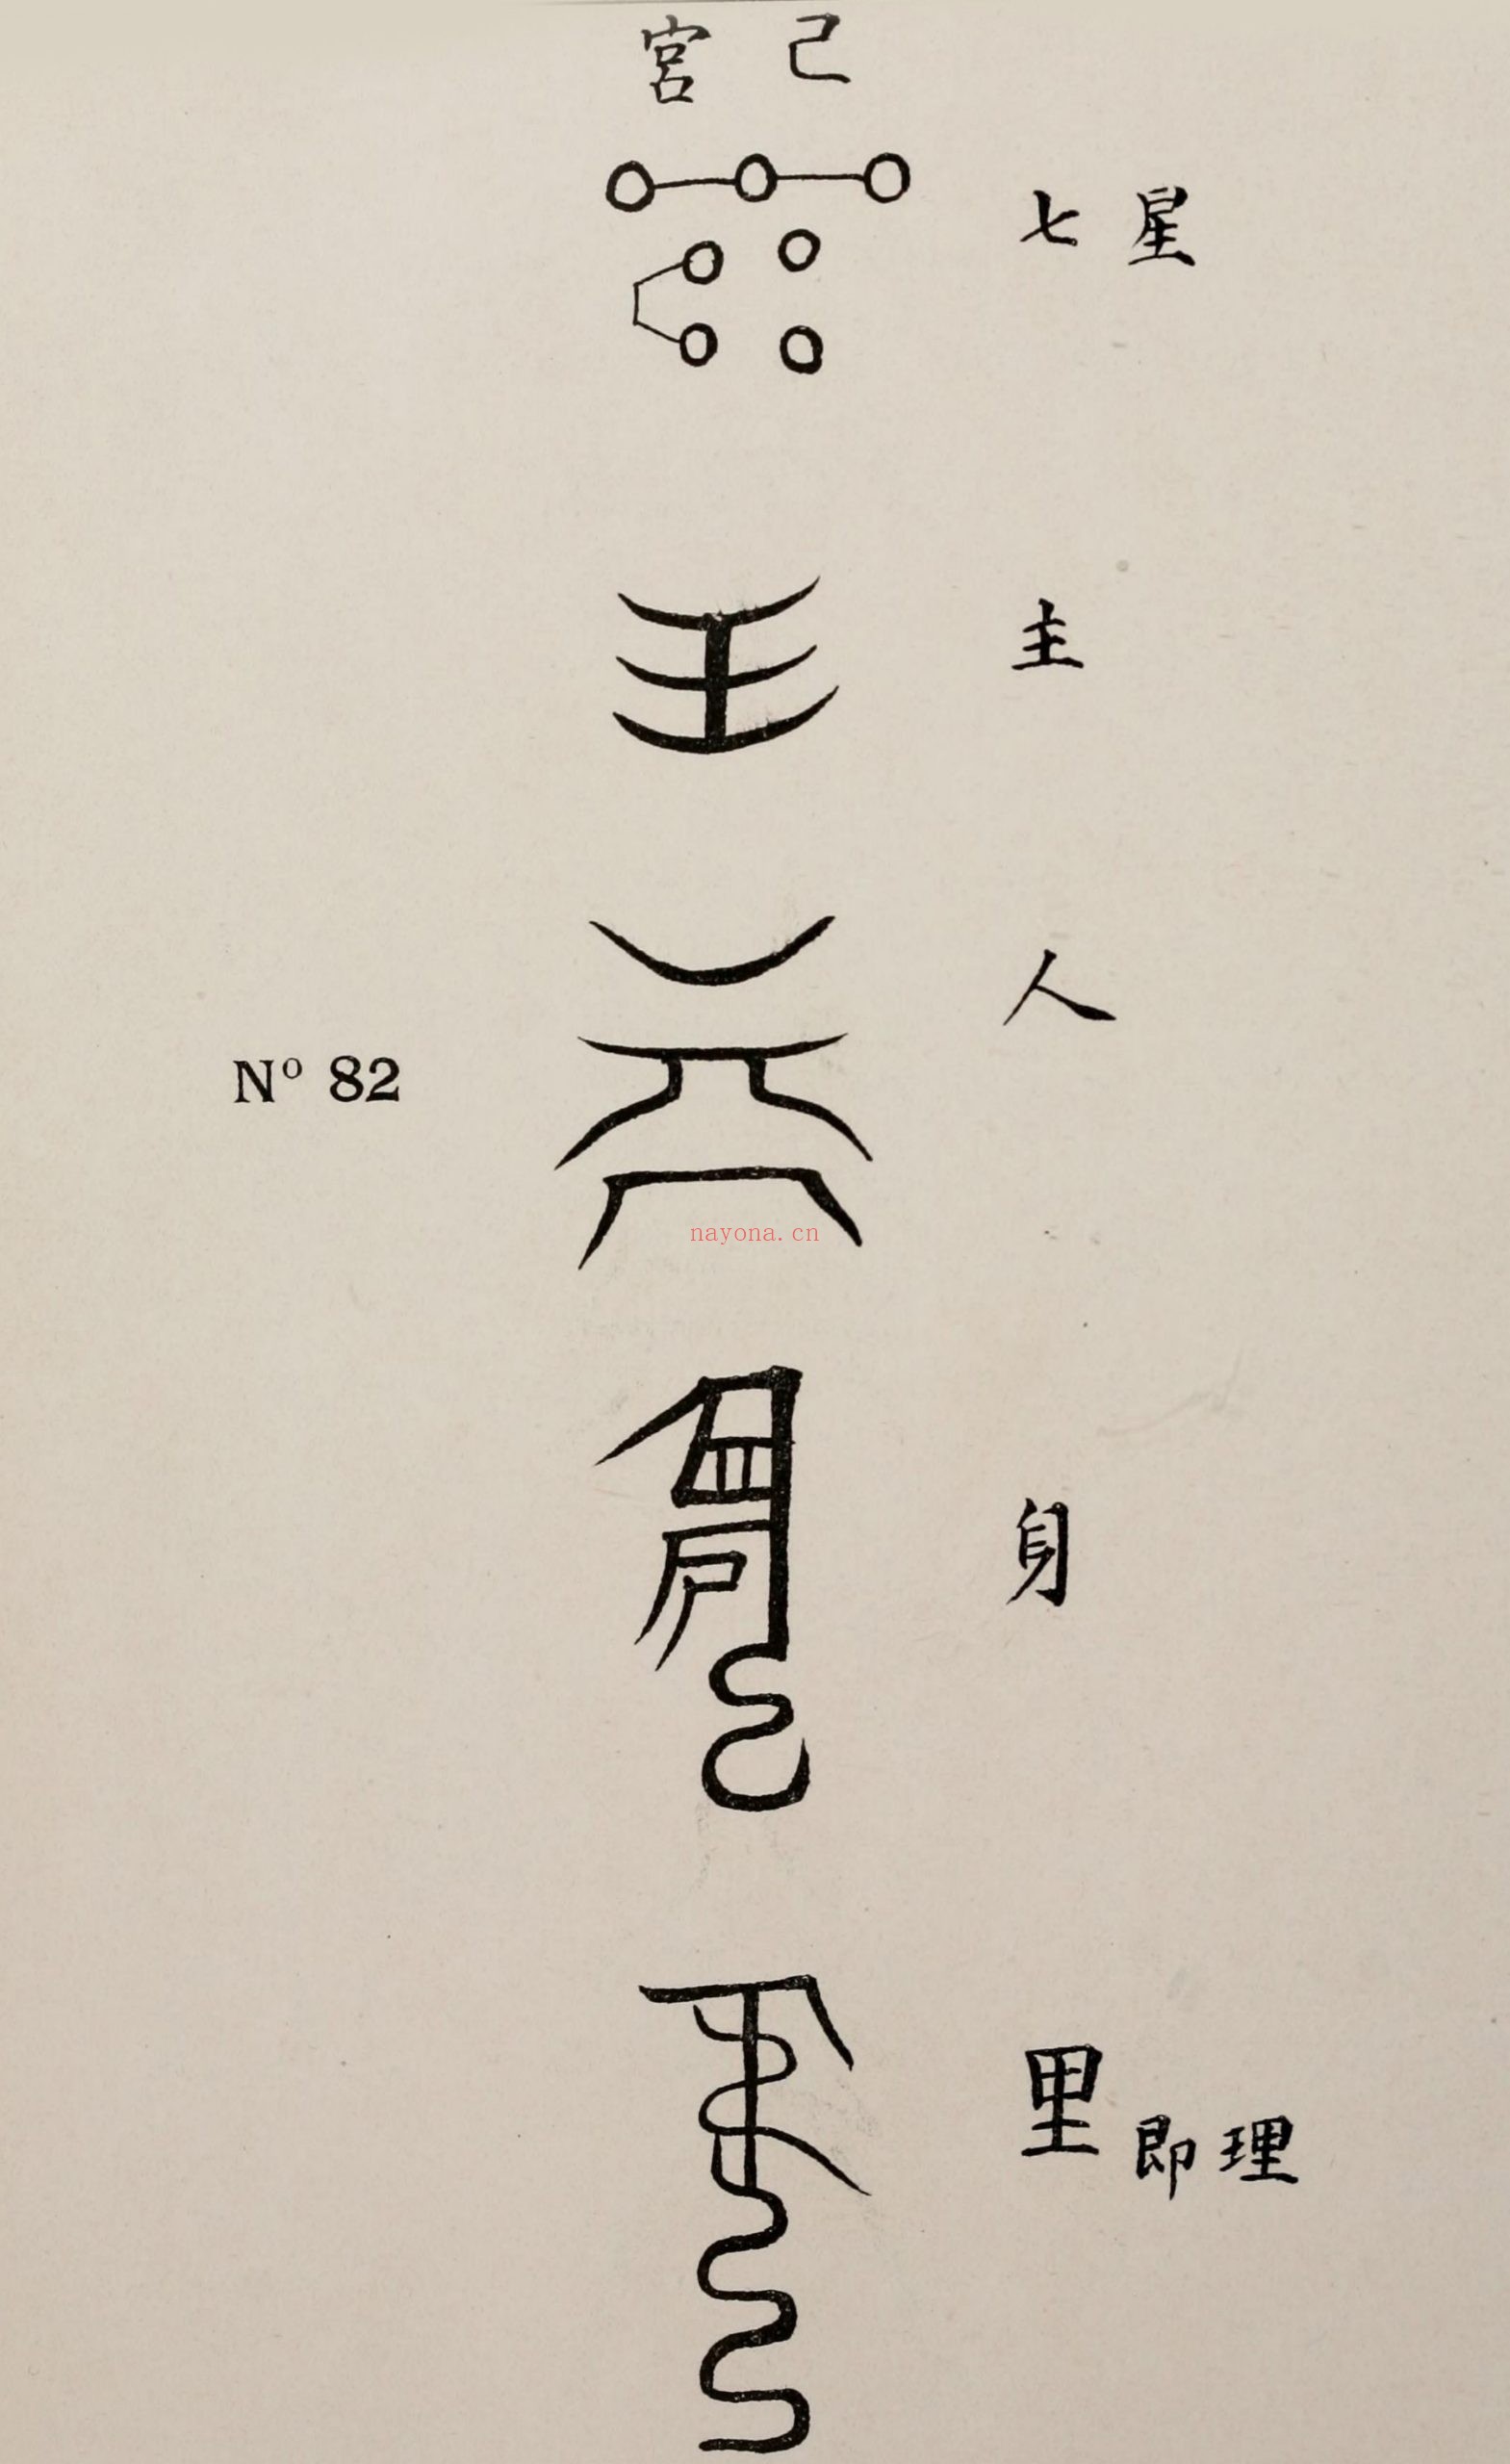 宮 己
七 星
主
人
Nº 82
nayona.cn
身
里 即 理